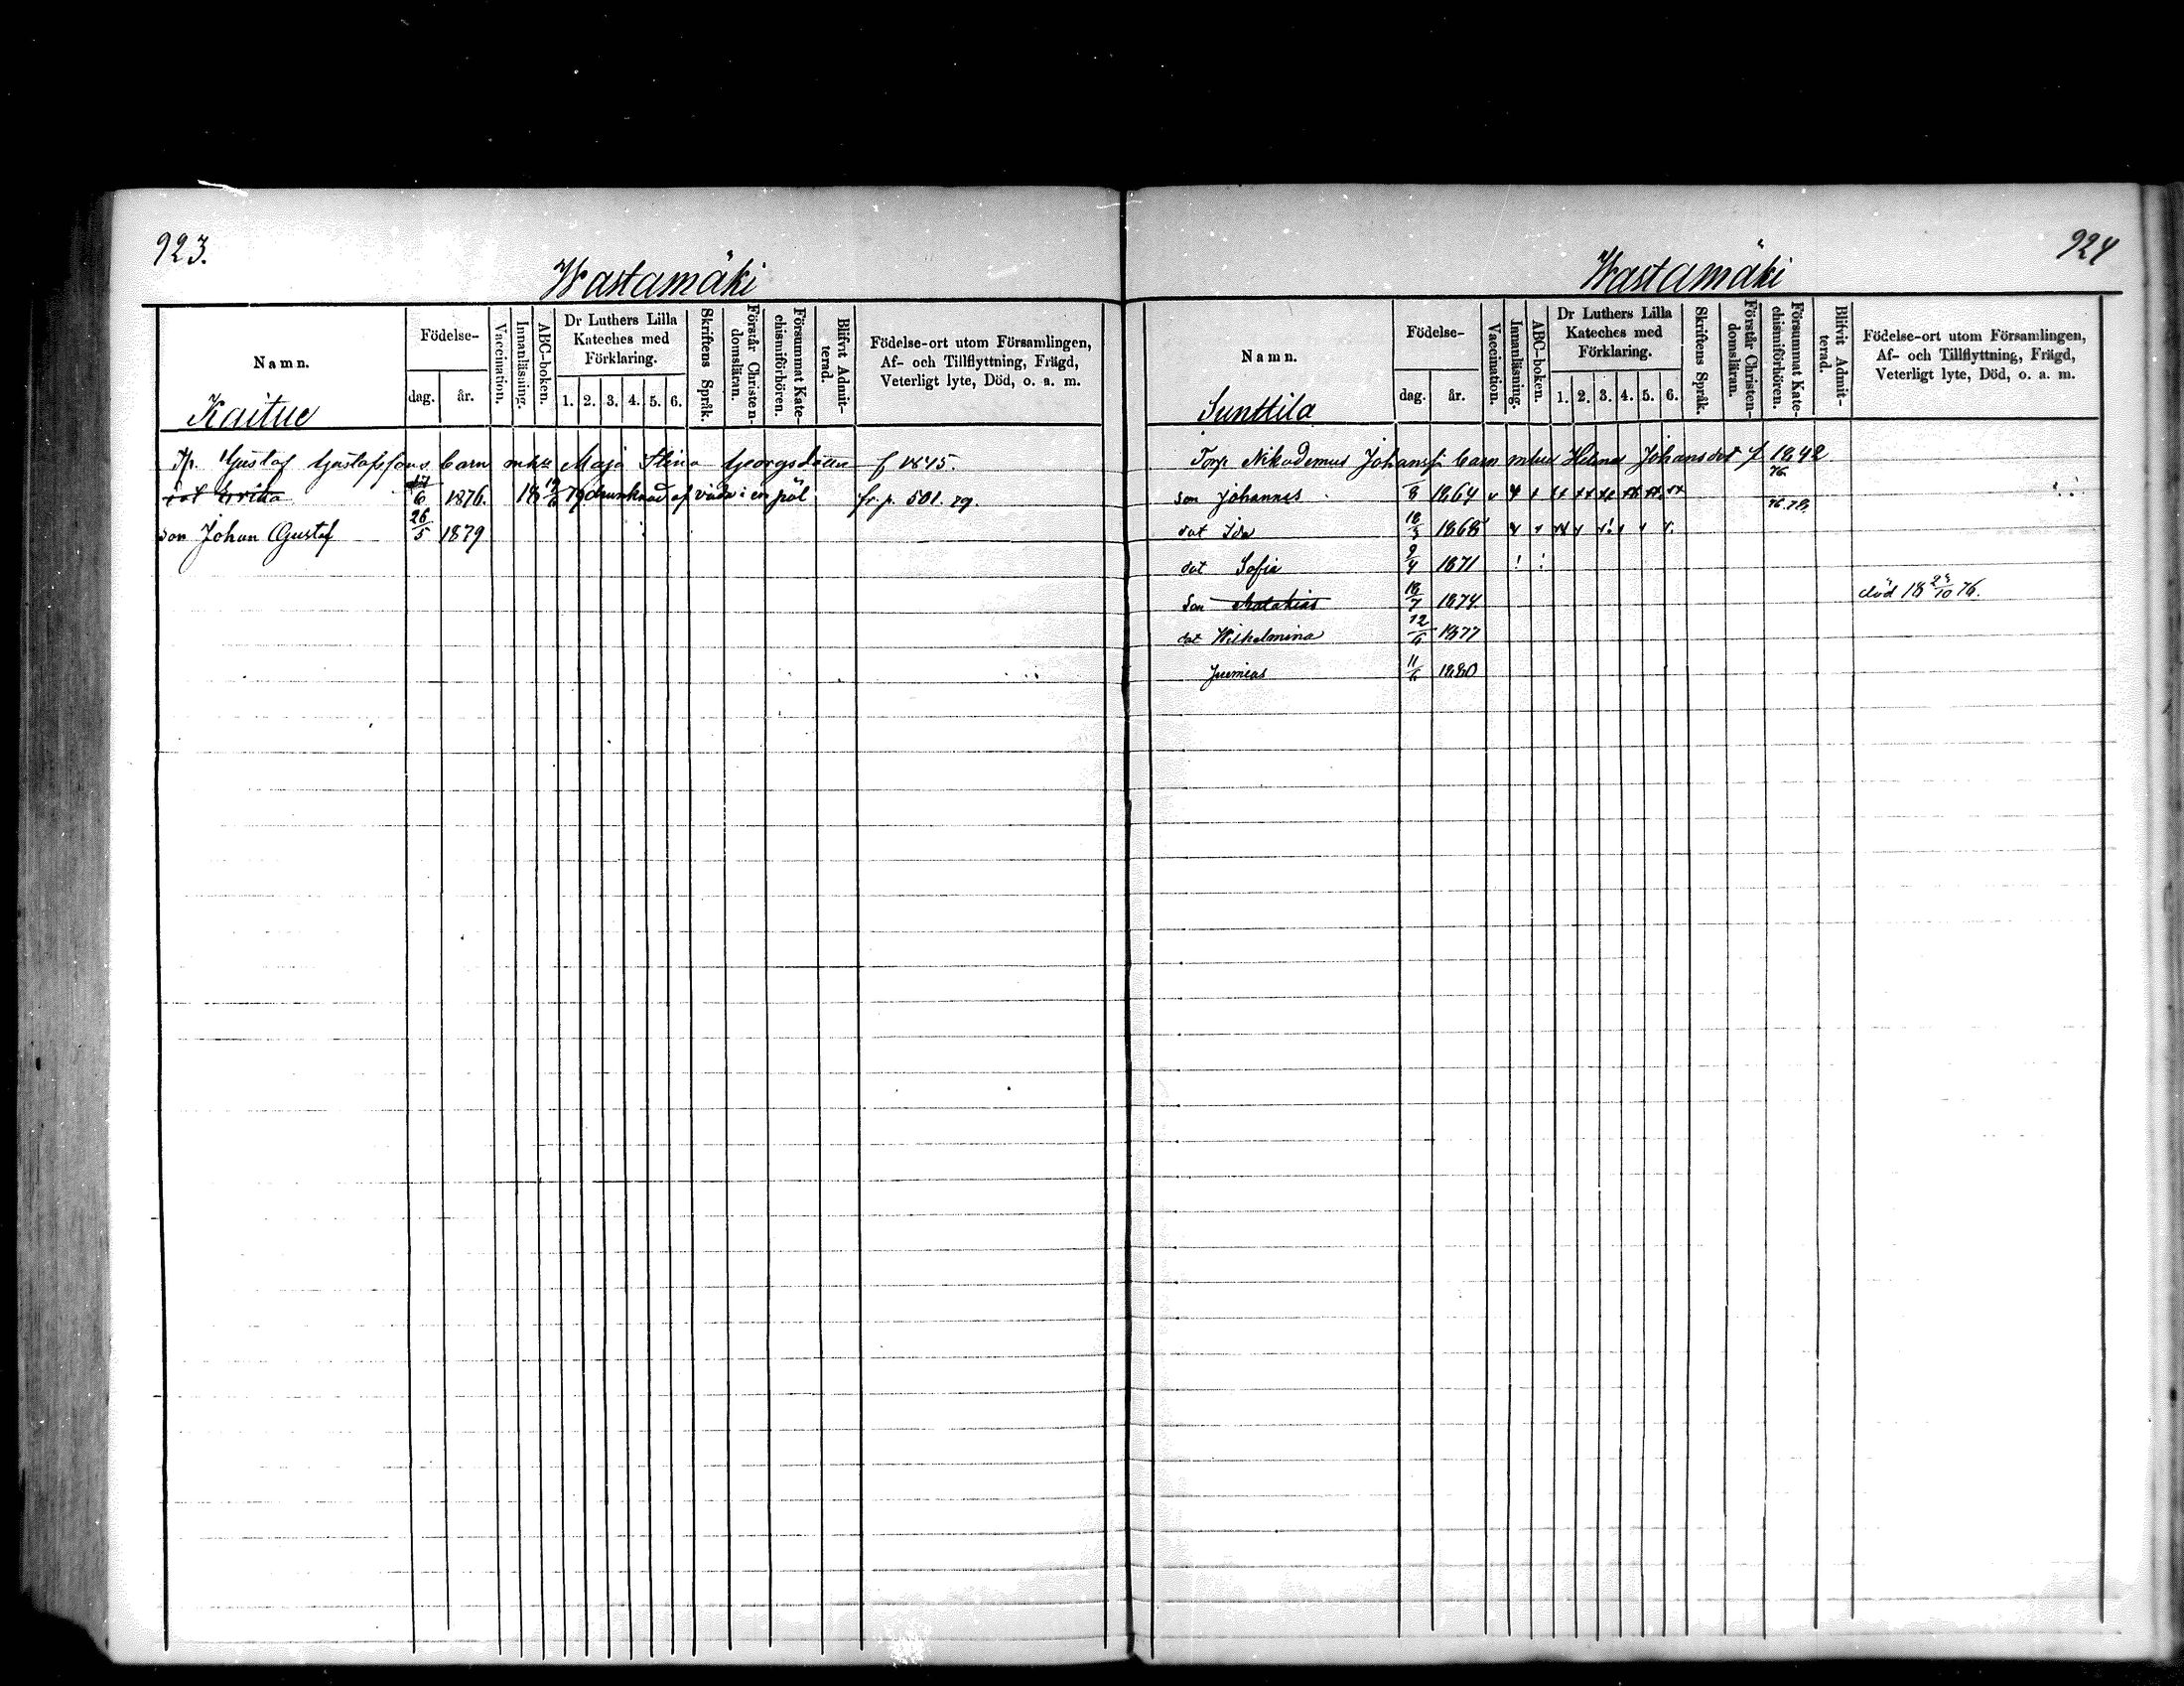 923.
Wastamäki
Namn.
Födelse-
dag. år.
Vaccination.
Innanläsning.
ABC-boken.
Dr Luthers Lilla Kateches med Förklaring.
1. 2. 3. 4. 5. 6.
Skriftens Språk.
Förstår Christendomsläran.
Försummat Katechismiförhören.
Blifvit Admitterad.
Födelse-ort utom Församlingen, Af- och Tillflyttning, Frägd, Veterligt lyte, Död, o. a. m.
Kaitue
Gustaf Gustafssons barn Maja Stina Georgsdotter f 1845.
Erika 17/6 1876. drunknad af våda i en pöl fr. p. 501.
son Johan Gustaf 26/5 1879
924
Wastamäki
Namn.
Födelse-
dag. år.
Vaccination.
Innanläsning.
ABC-boken.
Dr Luthers Lilla Kateches med Förklaring.
1. 2. 3. 4. 5. 6.
Skriftens Språk.
Förstår Christendomsläran.
Försummat Katechismiförhören.
Blifvit Admitterad.
Födelse-ort utom Församlingen, Af- och Tillflyttning, Frägd, Veterligt lyte, Död, o. a. m.
Sunttila
Torp Nikodemus Johanss barn Helena Johansdot f 1842
son Johannes 1864 76.
dot Ida 1868 76.78.
dot Sofia 2/4 1871
son Malakias 18/7 1874. död 18 /10 76.
dot Wilhelmina 1877
Jeremias 1880